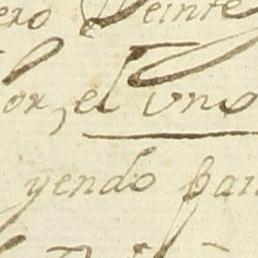 ero Veinte
or, el uno
yendo par